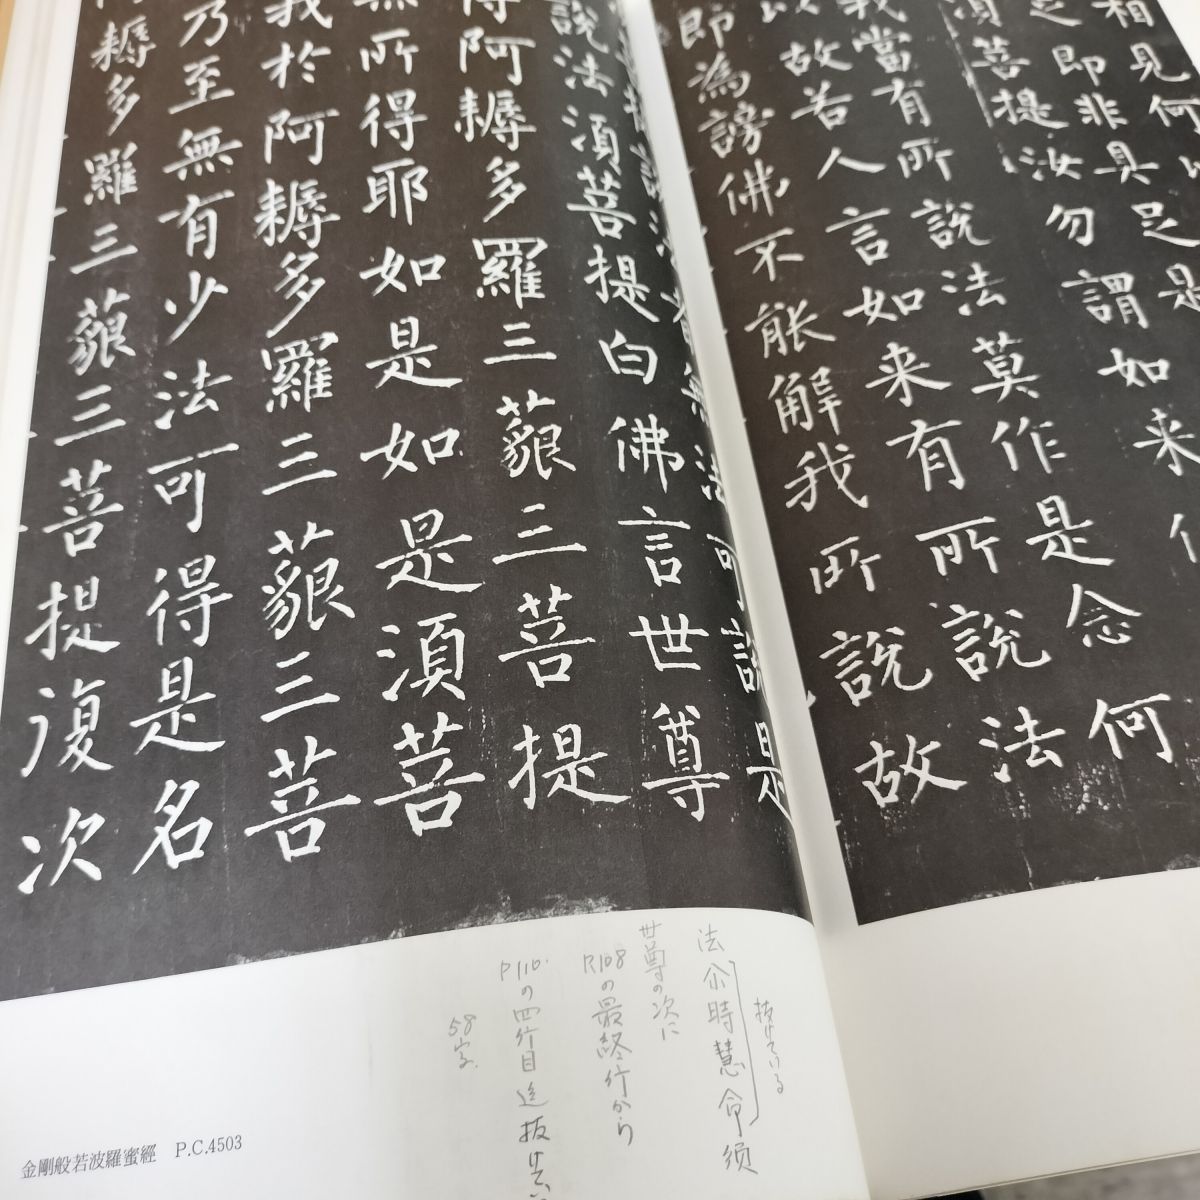 相見何以
足即非具足是
須菩提汝勿謂如来
我當有所說法莫作是念何
以故若人言如来有所說法
即為謗佛不能解我所說故
說法者無法可說是
說法須菩提白佛言世尊
得阿耨多羅三藐三菩提
無所得耶如是如是須菩
我於阿耨多羅三藐三菩
乃至無有少法可得是名
阿耨多羅三藐三菩提復次
抜けている
法尒時慧命須
世尊の次に
P.108の最終行から
P110.の四行目迄抜け
58字.
金剛般若波羅蜜經 P.C.4503